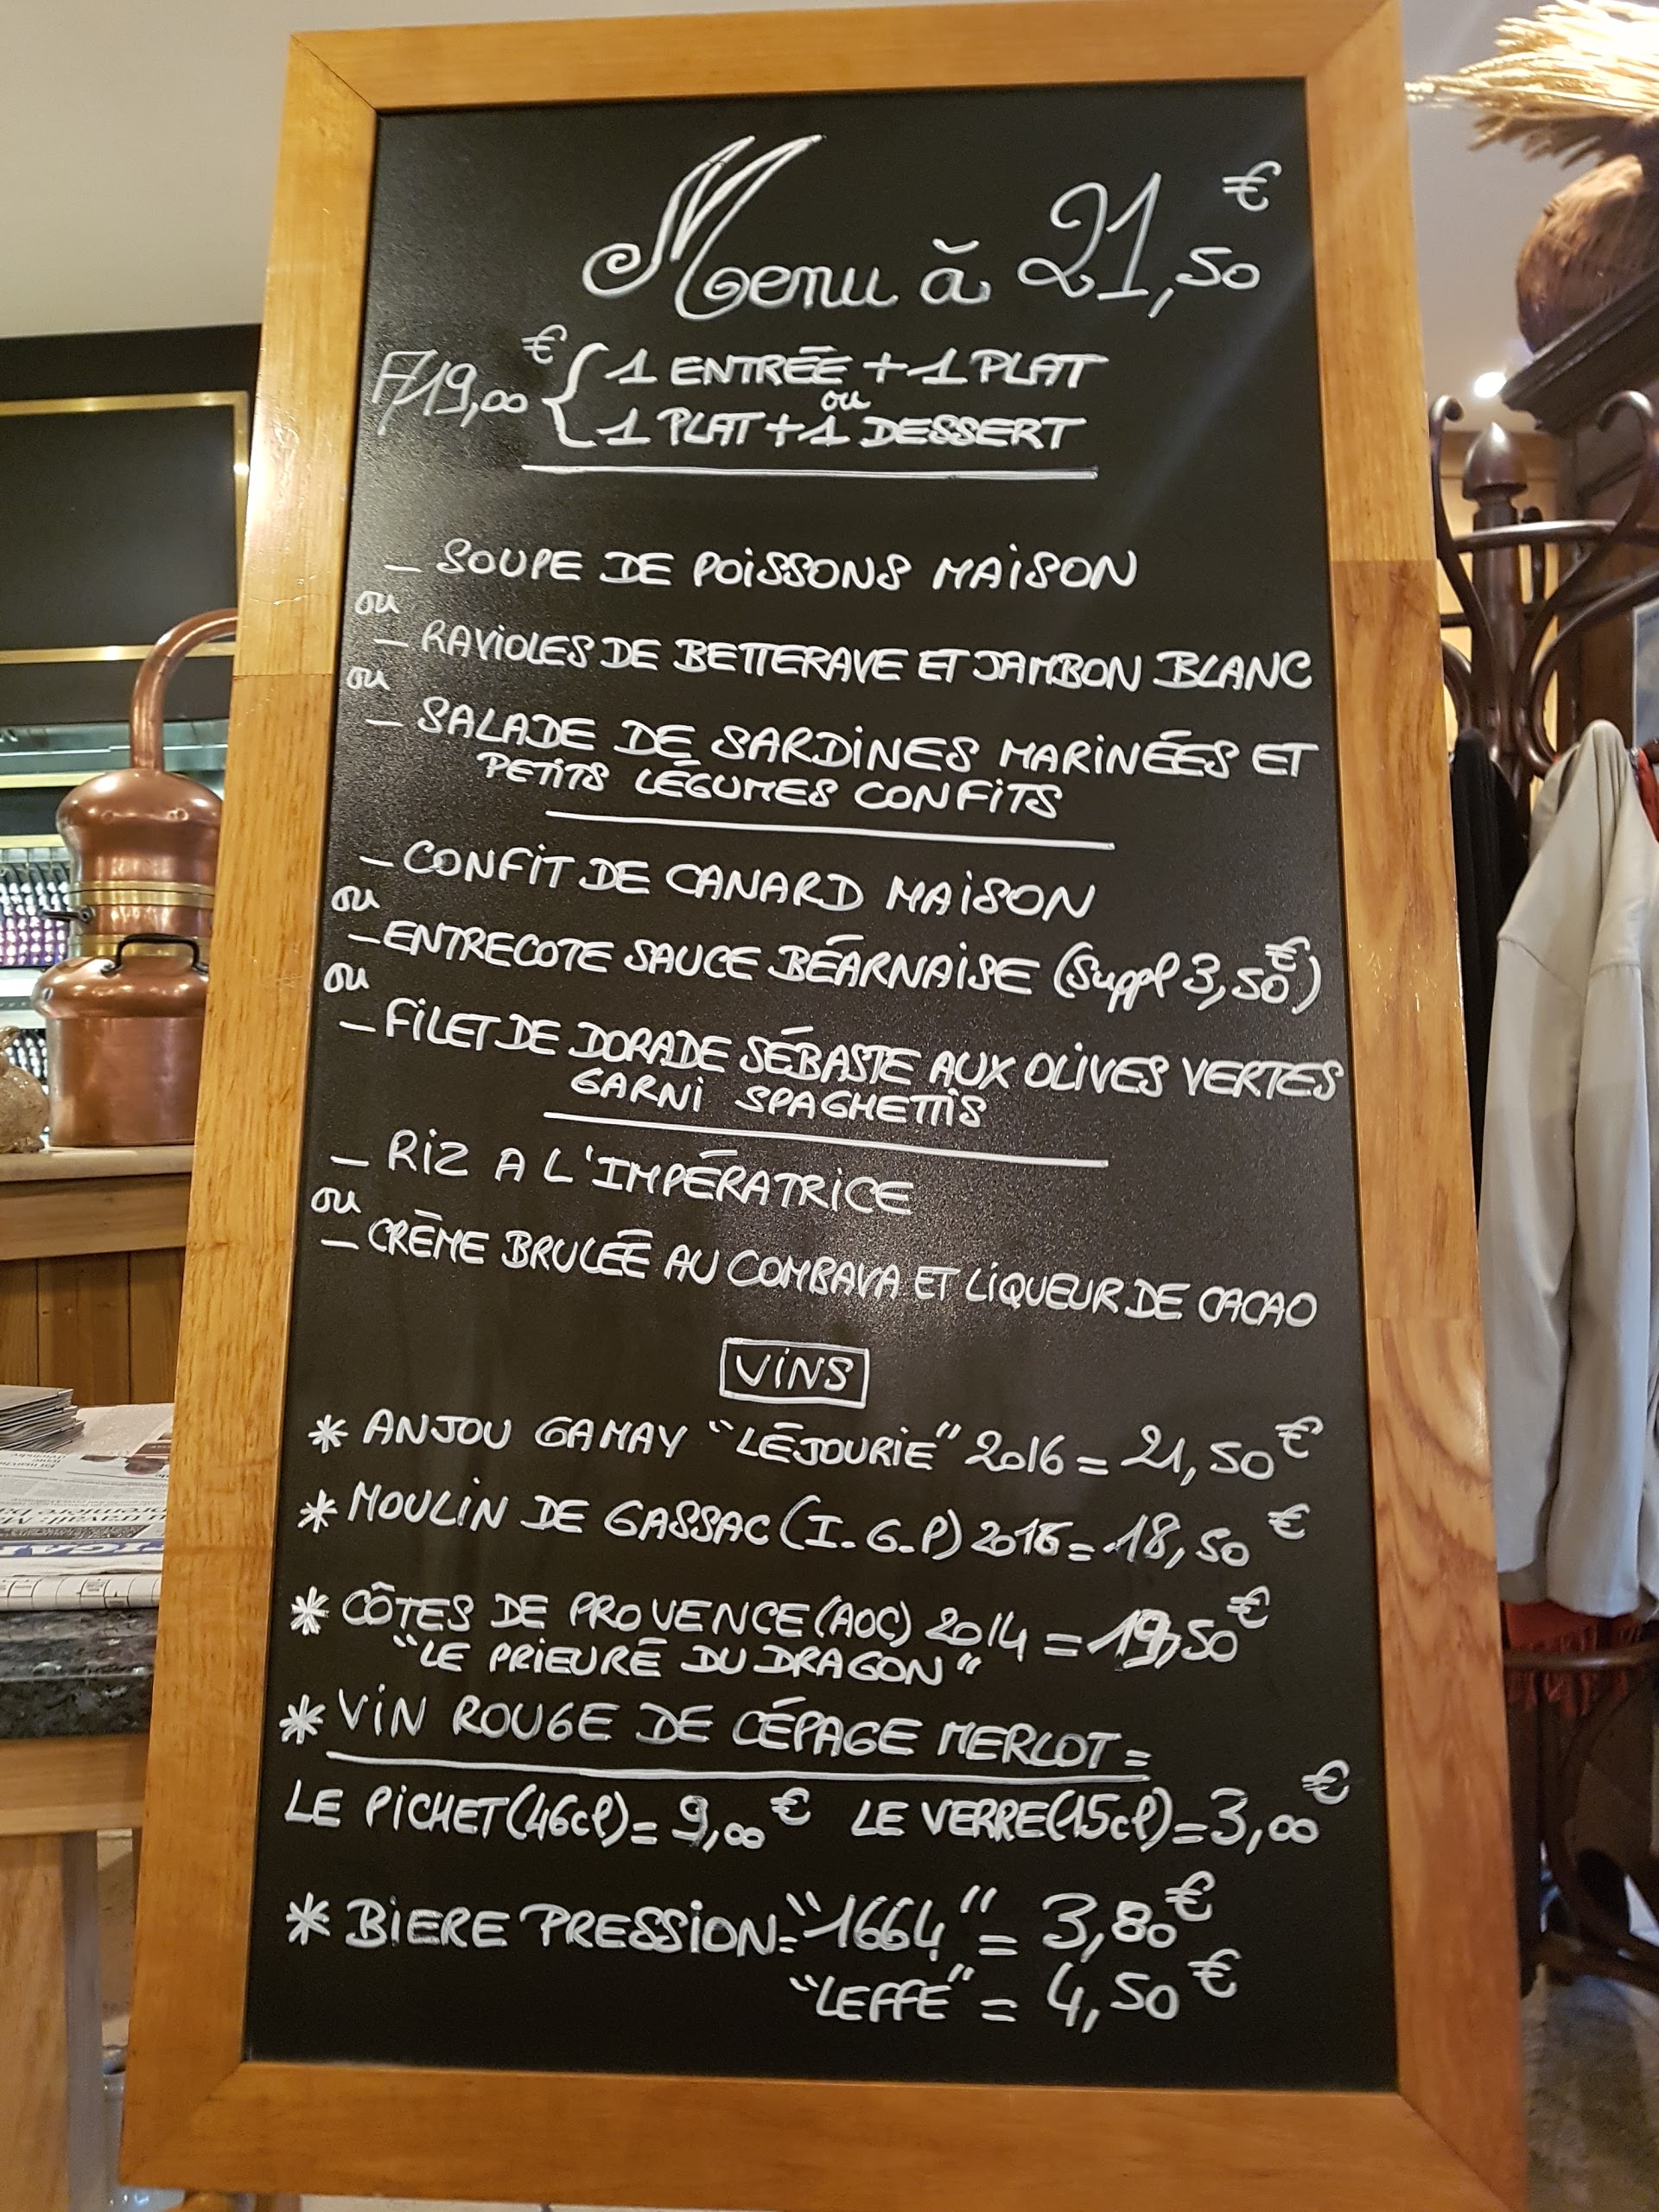 Menu à 21,50 €
F/19,00 € { 1 ENTRÉE + 1 PLAT
ou
1 PLAT + 1 DESSERT
_ SOUPE DE POISSONS MAISON
ou
_ RAVIOLES DE BETTERAVE ET JAMBON BLANC
ou
_ SALADE DE SARDINES MARINÉES ET
PETITS LÉGUMES CONFITS
_ CONFIT DE CANARD MAISON
ou
_ ENTRECOTE SAUCE BÉARNAISE (Suppl 3,50€)
ou
_ FILET DE DORADE SÉBASTE AUX OLIVES VERTES
GARNI SPAGHETTIS
_ RIZ A L'IMPÉRATRICE
ou
_ CRÈME BRULÉE AU COMBAVA ET LIQUEUR DE CACAO
VINS
* ANJOU GAMAY "LÉJOURIE" 2016 = 21,50 €
* MOULIN DE GASSAC (I.G.P) 2016 = 18,50 €
* CÔTES DE PROVENCE (AOC) 2014 = 19,50 €
"LE PRIEURÉ DU DRAGON"
* VIN ROUGE DE CÉPAGE MERLOT =
LE PICHET (46cl) = 9,00 € LE VERRE (15cl) = 3,00 €
* BIERE PRESSION = "1664" = 3,80 €
"LEFFE" = 4,50 €